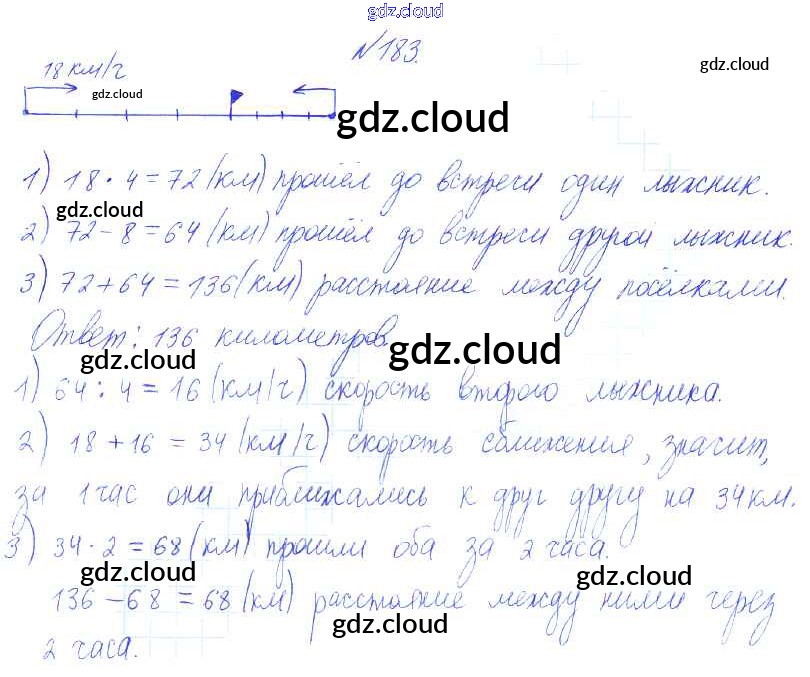 gdz.cloud
№183.
18 км/ч
gdz.cloud
gdz.cloud
gdz.cloud
1) 18 · 4 = 72 (км) прошёл до встречи один лыжник.
gdz.cloud
2) 72 - 8 = 64 (км) прошёл до встречи другой лыжник.
3) 72 + 64 = 136 (км) расстояние между посёлками.
Ответ: 136 километров.
gdz.cloud
gdz.cloud
1) 64 : 4 = 16 (км/ч) скорость второго лыжника.
2) 18 + 16 = 34 (км/ч) скорость сближения, значит,
за 1 час они приближались к друг другу на 34 км.
3) 34 · 2 = 68 (км) прошли оба за 2 часа.
gdz.cloud
gdz.cloud
136 - 68 = 68 (км) расстояние между ними через
gdz.cloud
2 часа.